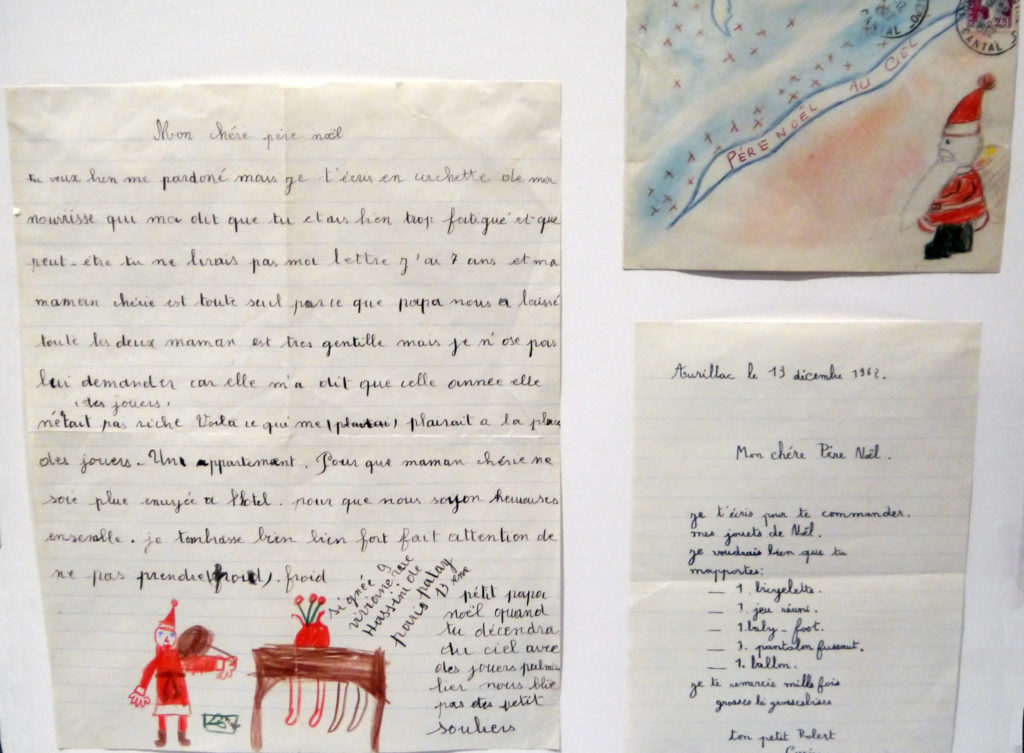 Mon chére père noël
tu veux bien me pardoné mais je t'écris en cachette de ma
nourisse qui ma dit que tu etais bien trop fatigué et que
peut-être tu ne lirais pas ma lettre j'ai 7 ans et ma
maman chérie est toute seul parce que papa nous a laissé
toute les deux maman est tres gentille mais je n'ose pas
lui demander car elle m'a dit que celle année elle
(des jouers)
n'était pas riche Voila ce qui me plairait a la place
des jouers. Un appartement. Pour que maman chérie ne
soie plue a l'hotel. pour que nous soyon heureuses
ensemble. je t'embrasse bien bien fort fait attention de
ne pas prendre (froid). froid
signée
paris
13 ème
pétit papa
noël quand
tu décendra
du ciel avec
des jouers
nous
pas des petit
souliers
PÉRE NOËL AU CIEL
CANTAL
CANTAL
0,25
Aurillac le 13 décembre 1962.
Mon chére Père Noël.
je t'écris pour te commander.
mes jouets de Nöel.
je voudrais bien que tu
m'apportes:
— 1. bicyclette.
— 1. jeu réuni.
— 1. baby-foot.
— 1. pantalon fuseaut.
— 1. ballon.
je te remercie mille fois
grosses
Ton petit Robert